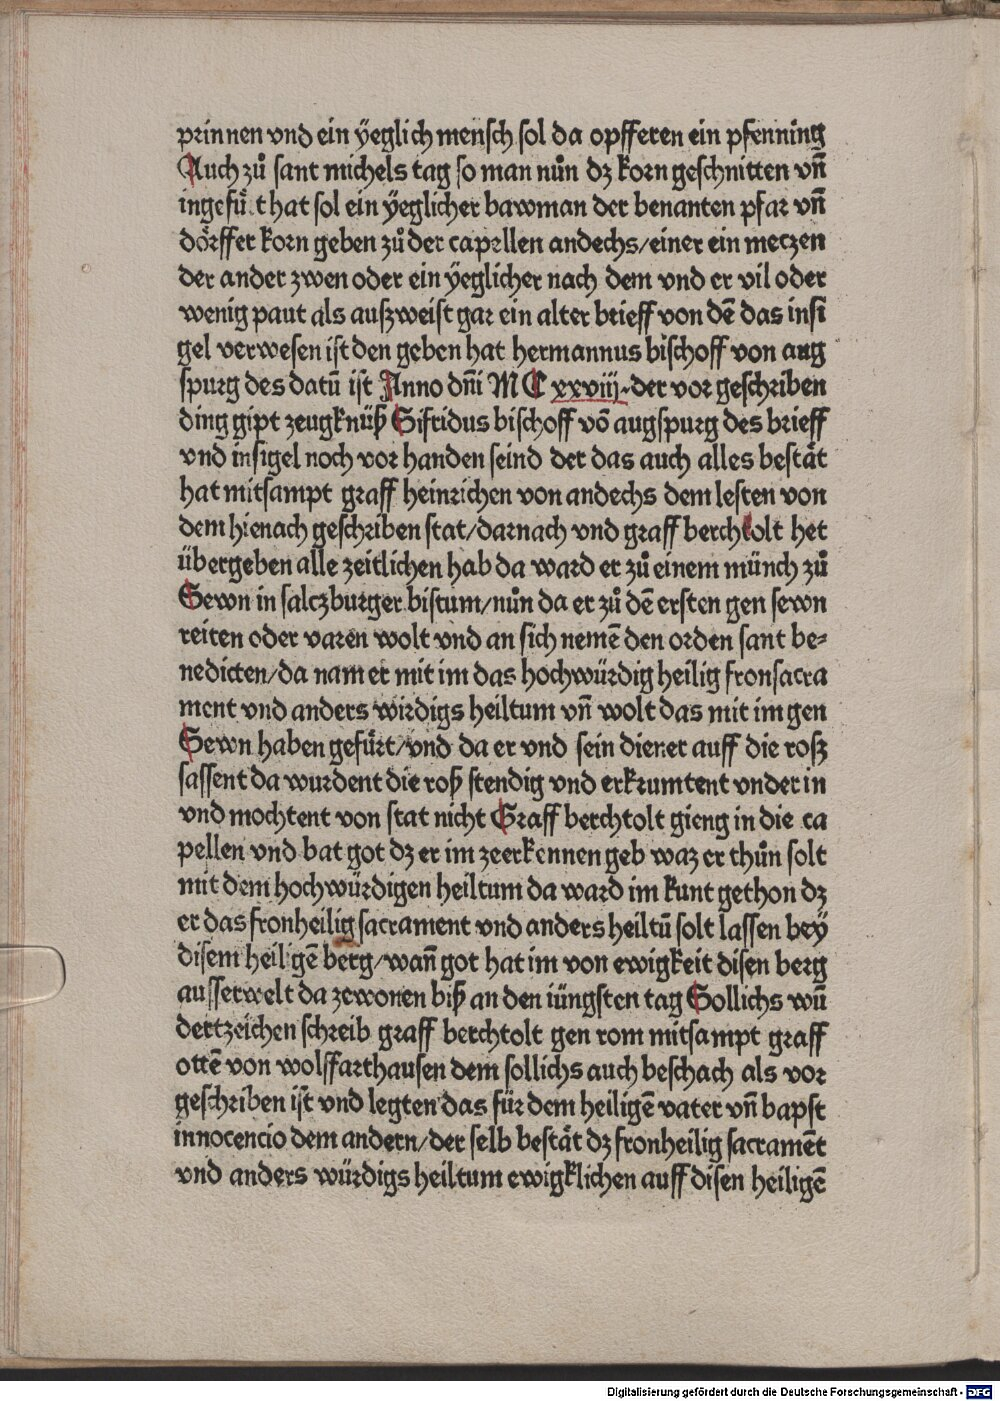 prinnen vnd ein ÿeglich mensch sol da opfferen ein pfenning
Auch zuͦ sant michels tag so man nuͦn dz korn geschnitten vñ
ingefuͤ.t hat sol ein ÿeglicher bawman der benanten pfar vñ
doͤrffer korn geben zuͦ der capellen andechs/einer ein meczen
der ander zwen oder ein ÿeglicher nach dem vnd er vil oder
wenig paut als außweist gar ein alter brieff von dē das insi
gel verwesen ist den geben hat hermannus bischoff von aug
spurg des datū ist Anno dñi M C xxviij der vor geschriben
ding gipt zeugknüß Sifridus bischoff vō augspurg des brieff
vnd insigel noch vor handen seind der das auch alles bestaͤt
hat mitsampt graff heinrichen von andechs dem lesten von
dem hienach geschriben stat/darnach vnd graff berchtolt het
übergeben alle zeitlichen hab da ward er zuͦ einem münch zuͦ
Sewn in salczburger bistum/nuͦn da er zuͦ dē ersten gen sewn
reiten oder varen wolt vnd an sich nemē den orden sant be-
nedicten/da nam er mit im das hochwürdig heilig fronsacra
ment vnd anders wirdigs heiltum vñ wolt das mit im gen
Sewn haben gefuͤrt/vnd da er vnd sein diener auff die roß
sassent da wurdent die roß stendig vnd erkrumtent vnder in
vnd mochtent von stat nicht Graff berchtolt gieng in die ca
pellen vnd bat got dz er im zeerkennen geb waz er thuͦn solt
mit dem hochwürdigen heiltum da ward im kunt gethon dz
er das fronheilig sacrament vnd anders heiltū solt lassen beÿ
disem heiligē berg/wañ got hat im von ewigkeit disen berg
ausserwelt da zewonen biß an den iüngsten tag Sollichs wū
dertzeichen schreib graff berchtolt gen rom mitsampt graff
ottē von wolffarthausen dem sollichs auch beschach als vor
geschriben ist vnd legten das für dem heiligē vater vñ bapst
innocencio dem andern/der selb bestaͤt dz fronheilig sacramēt
vnd anders würdigs heiltum ewigklichen auff disen heiligē
Digitalisierung gefördert durch die Deutsche Forschungsgemeinschaft - DFG